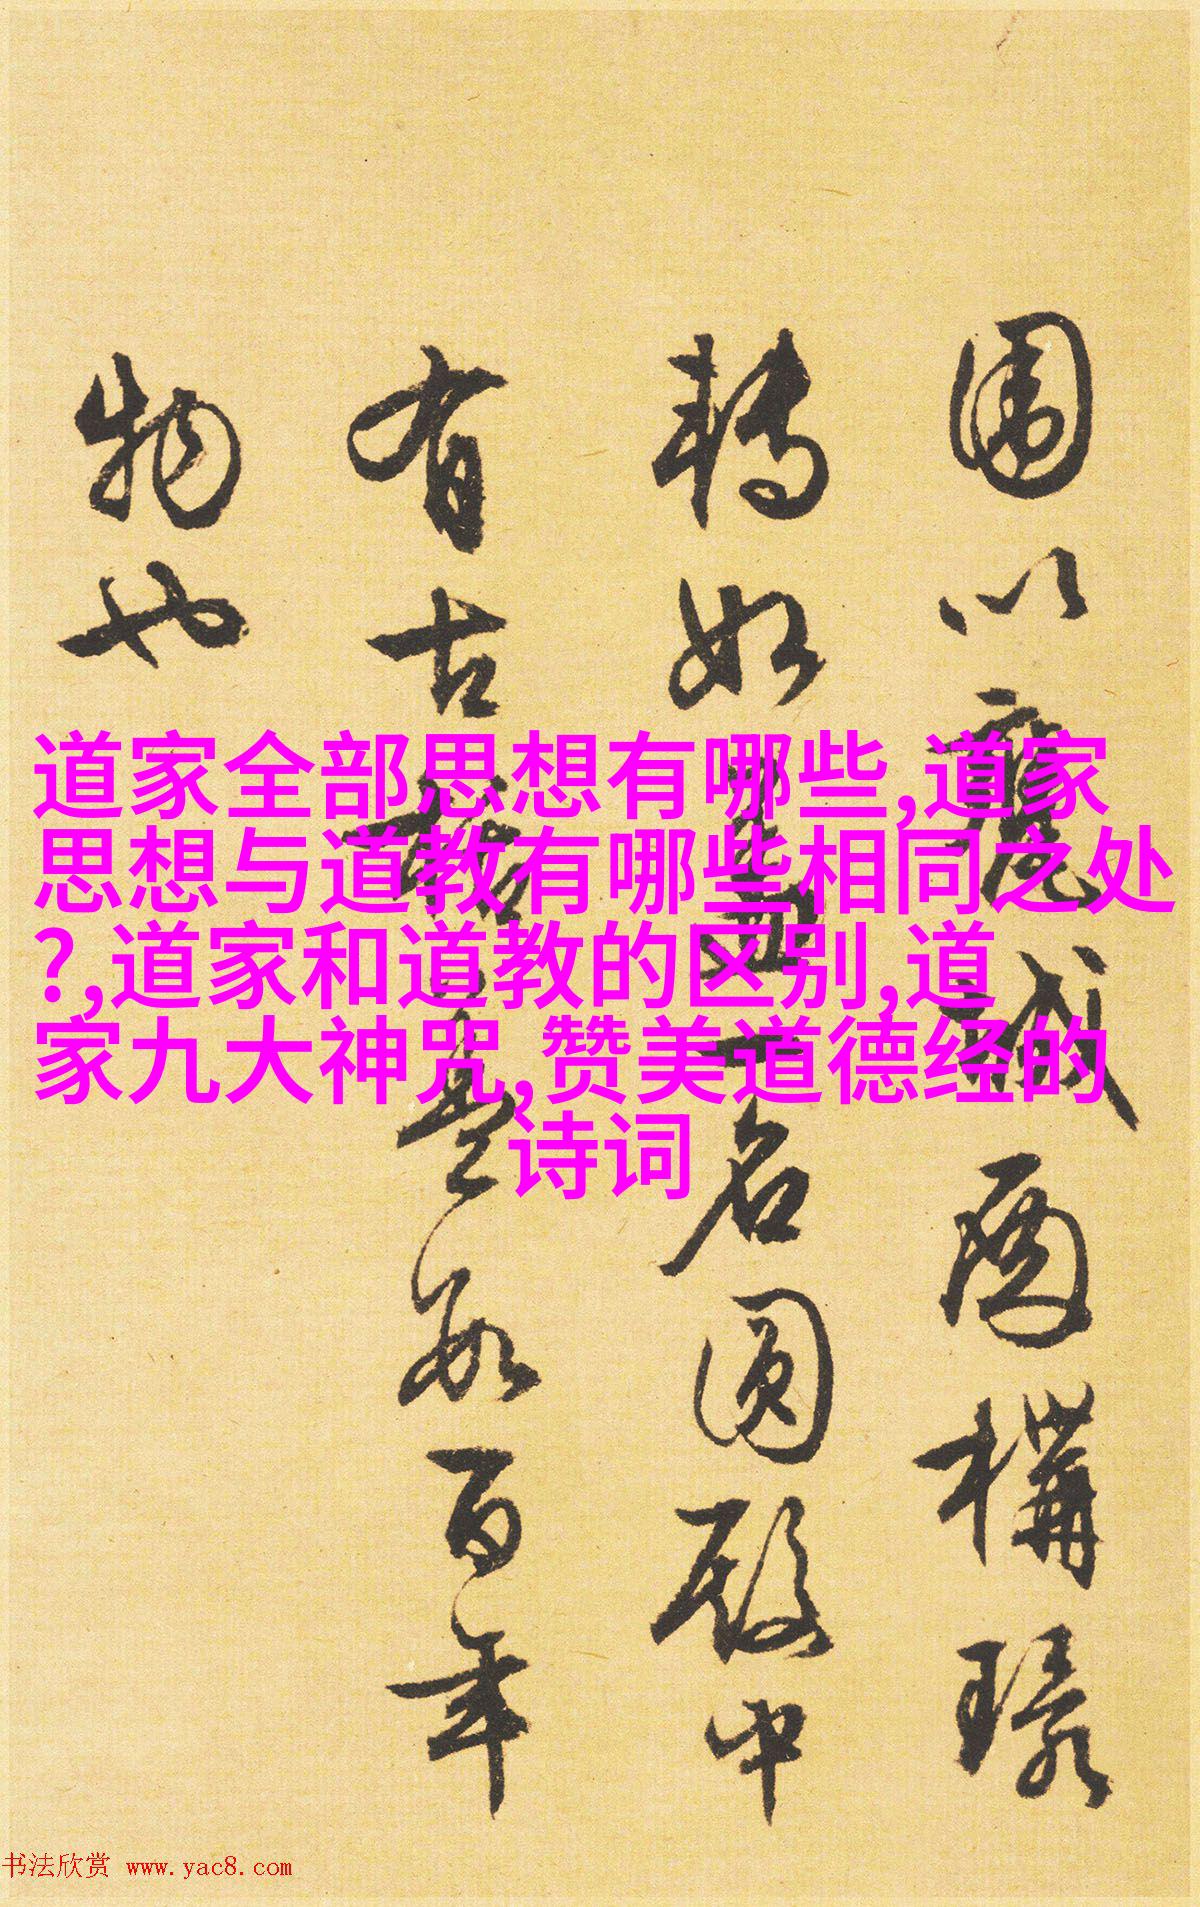 圍以構
轉如名圓殿中
有古數百年
物也
道家全部思想有哪些,道家
思想与道教有哪些相同之处
?,道家和道教的区别,道
家九大神咒,赞美道德经的
诗词
书法欣赏 www.yac8.com